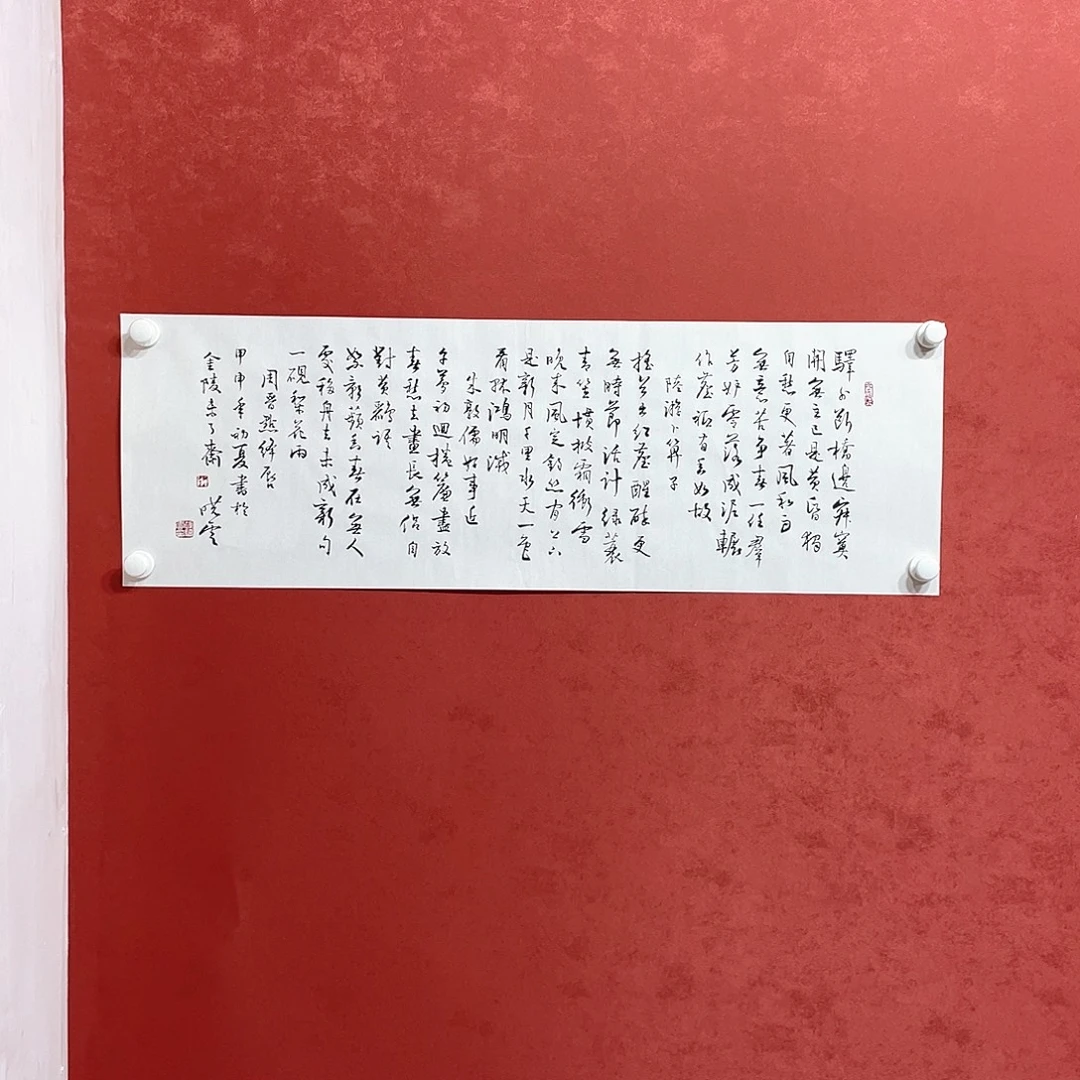 驛外斷橋邊寂寞
開無主已是黃昏獨
自愁更著風和雨
無意苦爭春一任羣
芳妒零落成泥輾
作塵祇有香如故
陸游卜算子
搖首出紅塵醒醉更
無時節活計綠蓑
青笠慣披霜衝雪
晚來風定釣絲閒上下
是新月千里水天一色
看孤鴻明滅
朱敦儒好事近
午夢初迴捲簾盡放
春愁去晝長無侶自
對黃鸝語
絮影蘋香春在無人
處移舟去未成新句
一硯梨花雨
周晉點絳唇
甲申年初夏書於
金陵未了齋 曉雲